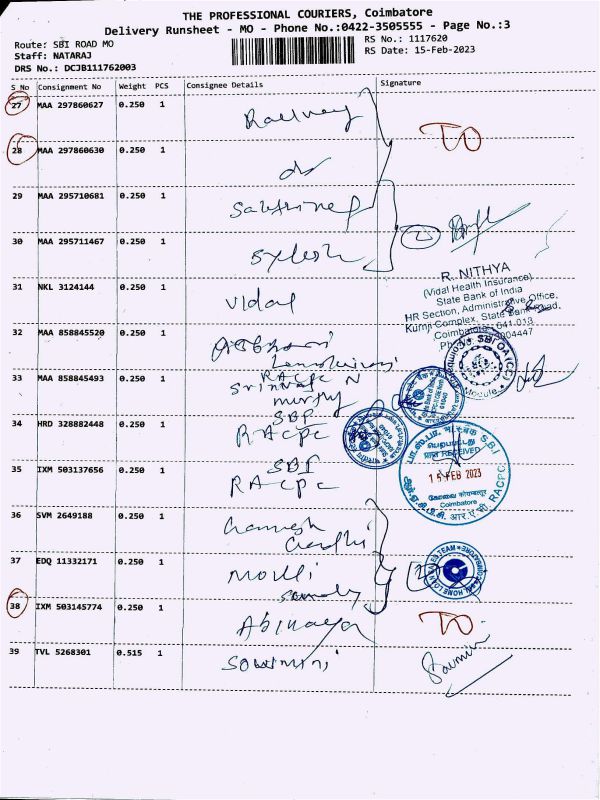 THE PROFESSIONAL COURIERS, Coimbatore
Delivery Runsheet - MO - Phone No.:0422-3505555 - Page No.:3
Route: SBI ROAD MO
RS No.: 1117620
Staff: NATARAJ
RS Date: 15-Feb-2023
DRS No.: DCJB111762003
S No Consignment No Weight PCS Consignee Details Signature
27 MAA 297860627 0.250 1 Railway
TO
28 MAA 297860630 0.250 1 do
29 MAA 295710681 0.250 1
30 MAA 295711467 0.250 1 Sylesh
2
R. NITHYA
(Vidal Health Insurance)
State Bank of India
HR Section, Administrative Office,
Kurnji Complex, State Bank Road,
Coimbatore - 641 013
31 NKL 3124144 0.250 1 Vidal
32 MAA 858845520 0.250 1
33 MAA 858845493 0.250 1 RACPC N
murthy
34 HRD 328882448 0.250 1 SBI
RACPC
35 IXM 503137656 0.250 1 SBI
RACPC
RECEIVED
15 FEB 2023
Coimbatore
36 SVM 2649188 0.250 1
Gandhi
37 EDQ 11332171 0.250 1 Mouli
2
38 IXM 503145774 0.250 1 Abinaya
TO
39 TVL 5268301 0.515 1 Sowmini